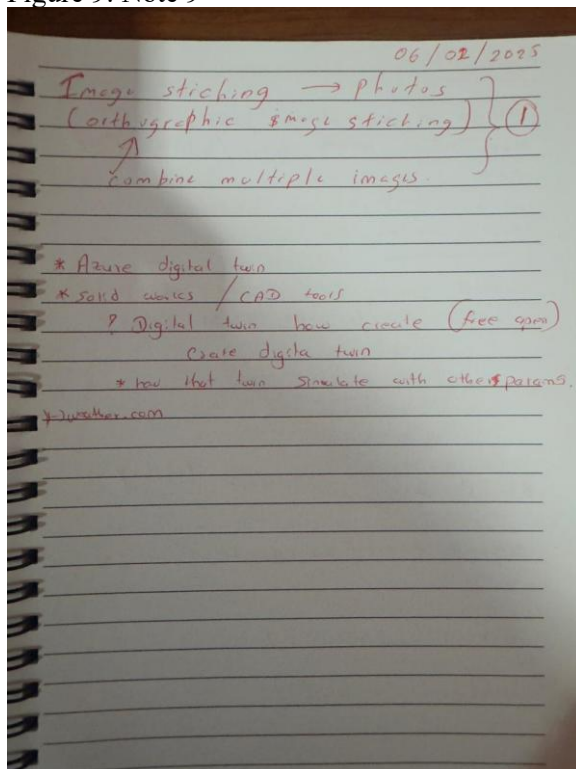 Figure 9. Note 9
06/02/2025
Image stiching → photos
(orthographic image stiching) } ①
combine multiple images.
* Azure digital twin
* Solid works / CAD tools
? Digital twin how create (free open)
Create digita twin
* how that twin simulate with others params.
weather.com